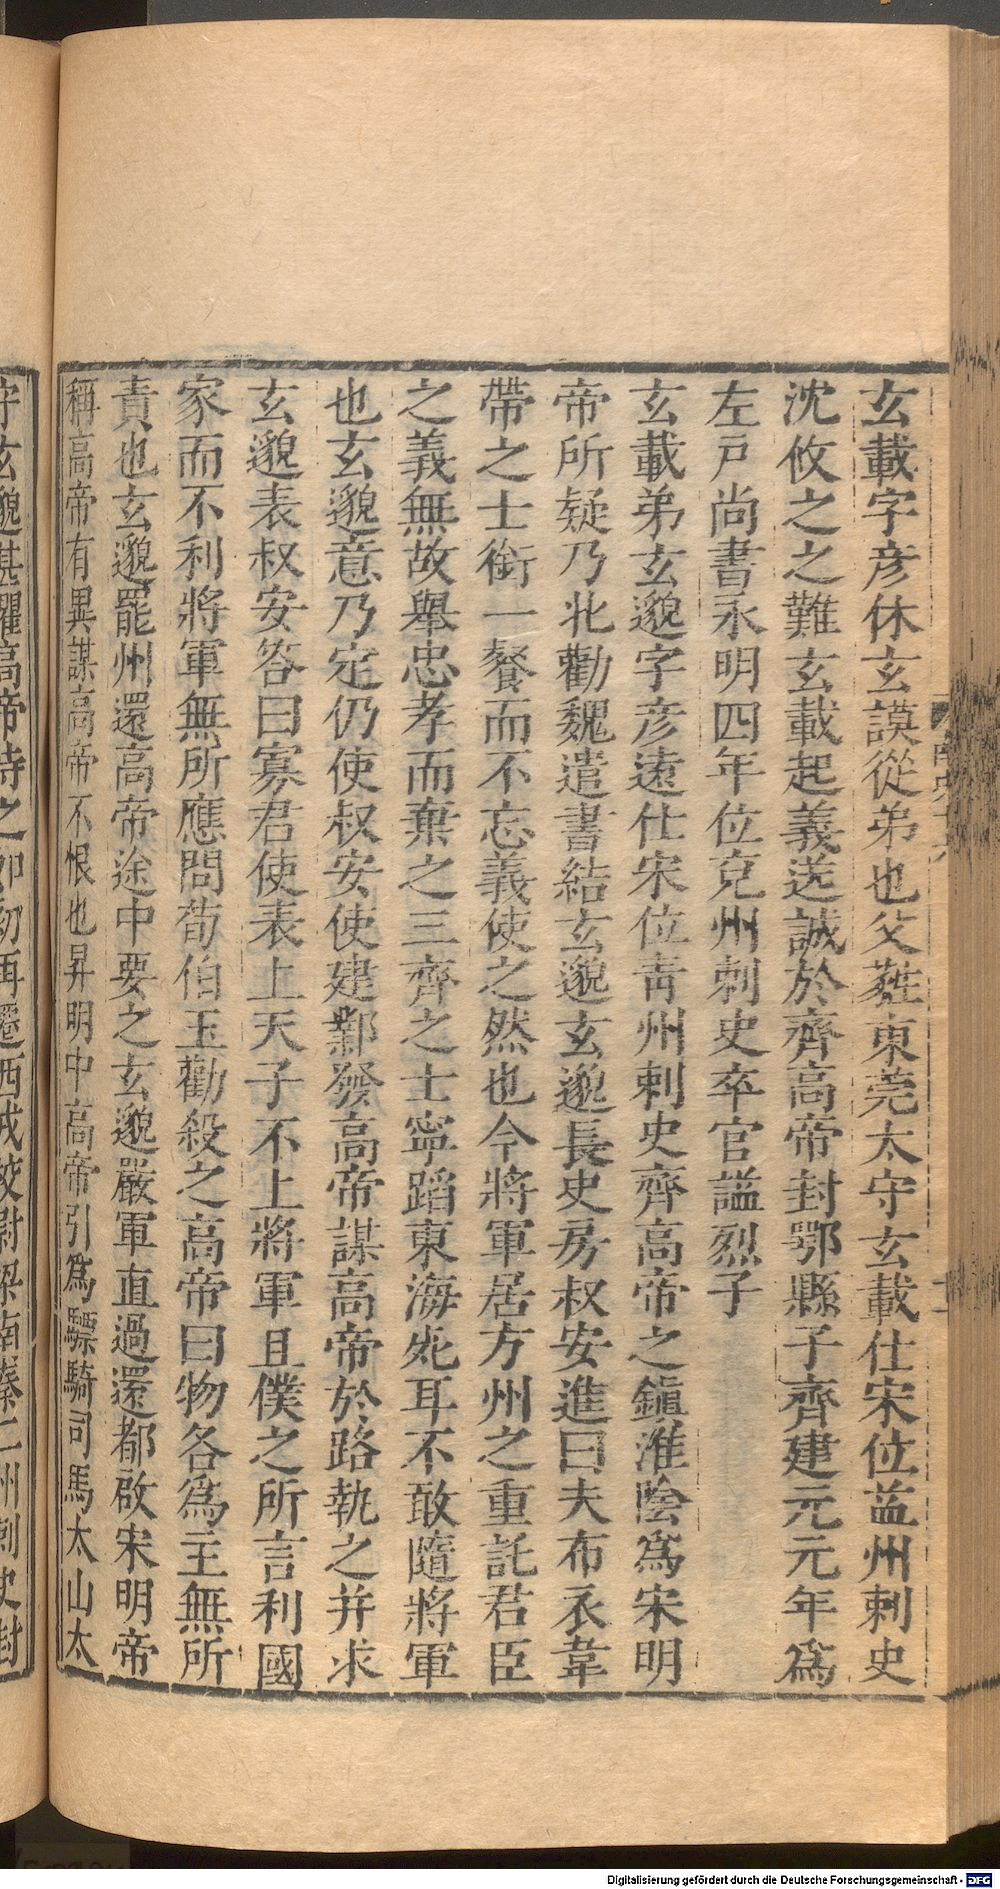 玄載字彥休玄謨從弟也父蕤東莞太守玄載仕宋位益州刺史
沈攸之之難玄載起義送誠於齊高帝封鄂縣子齊建元元年爲
左戸尚書永明四年位兗州刺史卒官諡烈子
玄載弟玄邈字彥遠仕宋位靑州刺史齊高帝之鎭淮陰爲宋明
帝所疑乃北勸魏遣書結玄邈玄邈長史房叔安進曰夫布衣韋
帶之士銜一餐而不忘義使之然也今將軍居方州之重託君臣
之義無故舉忠孝而棄之三齊之士寧蹈東海死耳不敢隨將軍
也玄邈意乃定仍使叔安使建鄴發高帝謀高帝於路執之并求
玄邈表叔安答曰寡君使表上天子不上將軍且僕之所言利國
家而不利將軍無所應問荀伯玉勸殺之高帝曰物各爲主無所
責也玄邈罷州還高帝途中要之玄邈嚴軍直過還都啟宋明帝
稱高帝有異謀高帝不恨也昇明中高帝引爲驃騎司馬太山太
守玄邈甚懼高帝待之如初再遷西戎校尉梁南秦二州刺史封
Digitalisierung gefördert durch die Deutsche Forschungsgemeinschaft - DFG